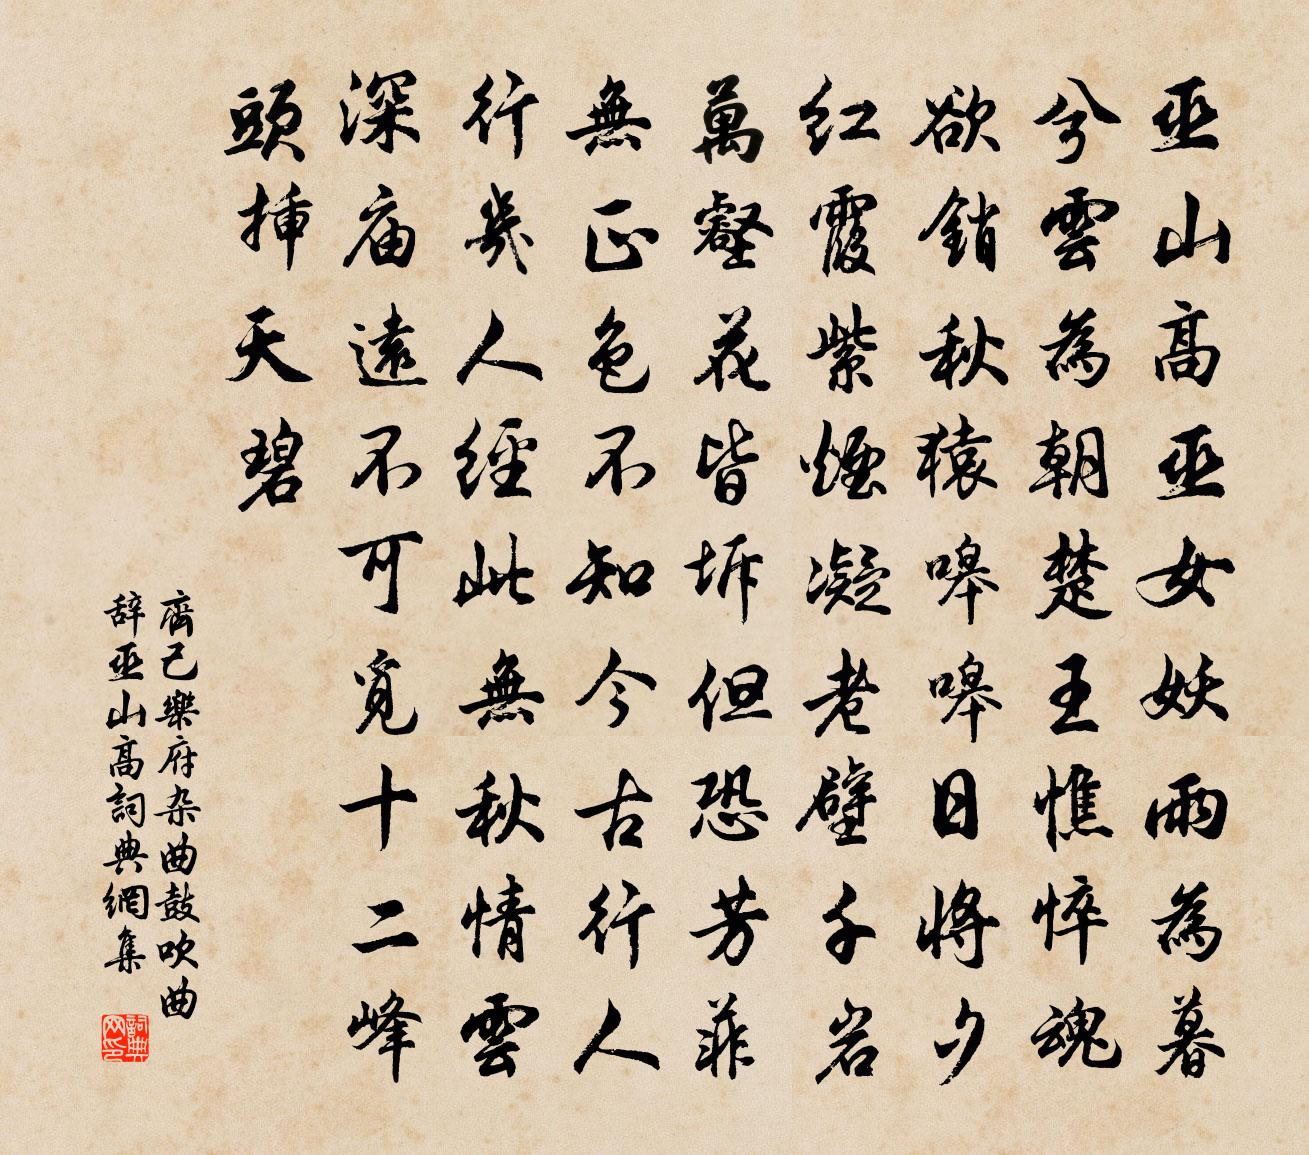 巫山高巫女妖雨為暮
兮雲為朝楚王憔悴魂
欲銷秋猿嗥嗥日將夕
紅霞紫煙凝老壁千岩
萬壑花皆坼但恐芳菲
無正色不知今古行人
行幾人經此無秋情雲
深庙遠不可覓十二峰
頭插天碧
齊己樂府杂曲鼓吹曲
辞巫山高詞典網集
詞典
网印